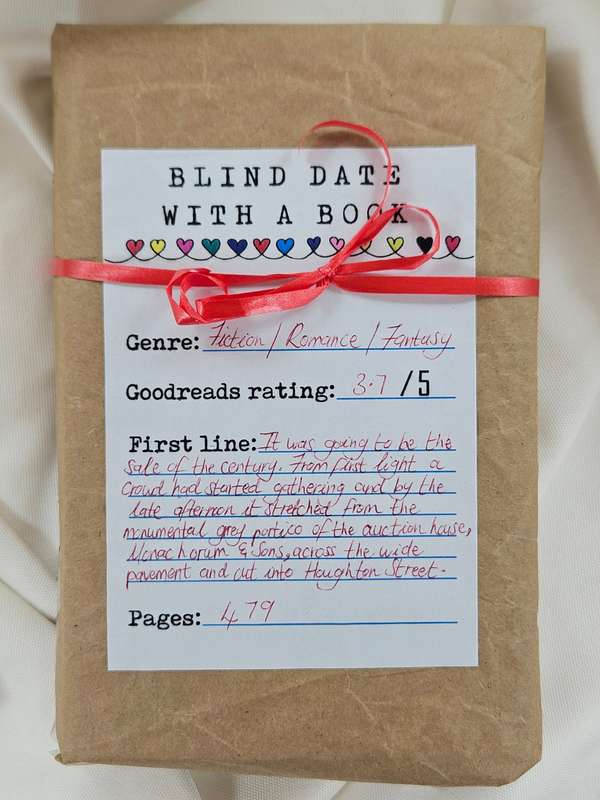 BLIND DATE
WITH A BOOK
Genre: Fiction / Romance / Fantasy
Goodreads rating: 3.7 /5
First line: It was going to be the
sale of the century. From first light a
crowd had started gathering and by the
late afternoon it stretched from the
monumental grey portico of the auction house,
Monachorum & Sons, across the wide
pavement and out into Houghton Street.
Pages: 479